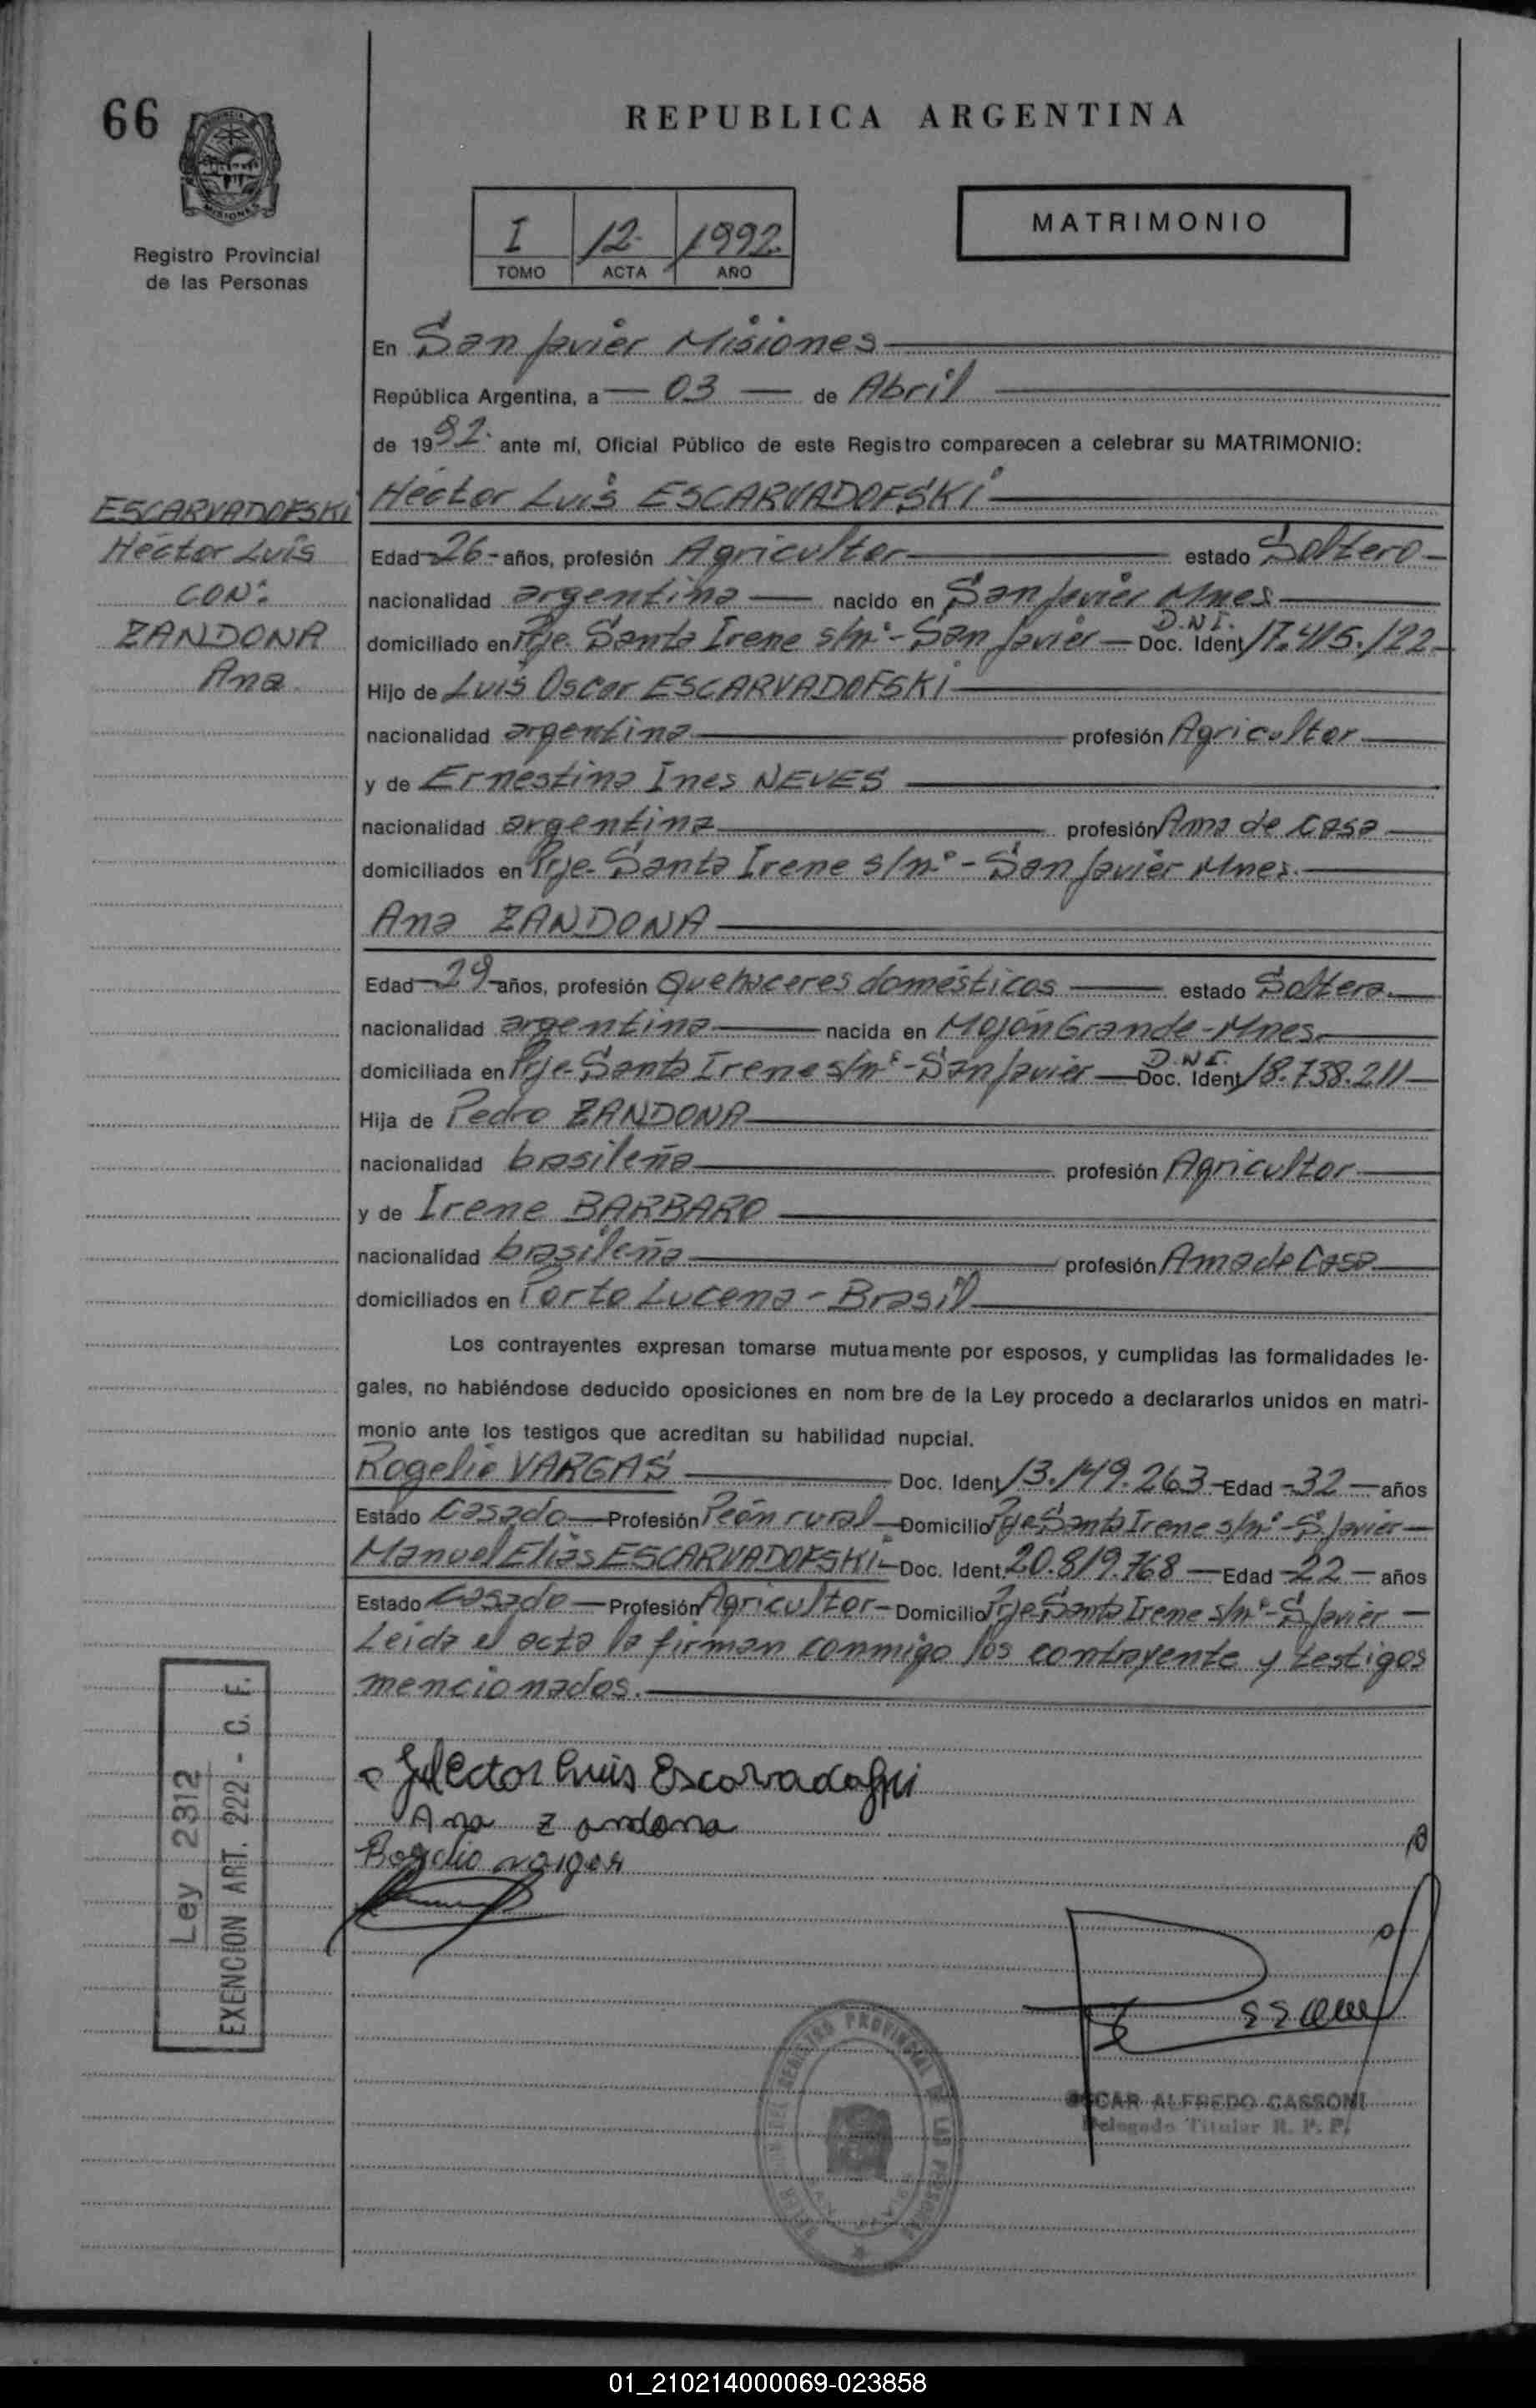 66
REPUBLICA ARGENTINA
MISIONES
Registro Provincial
de las Personas
I 12 1992
TOMO ACTA AÑO
MATRIMONIO
En San Javier Misiones
República Argentina, a — 03 — de Abril
de 1992. ante mí, Oficial Público de este Registro comparecen a celebrar su MATRIMONIO:
ESCARVADOFSKI
Héctor Luis
CON:
ZANDONA
Ana
Héctor Luis ESCARVADOFSKI
Edad 26 años, profesión Agricultor estado Soltero
nacionalidad argentina nacido en San Javier Mnes
domiciliado en Pje. Santa Irene s/nº - San Javier — D.N.I. Doc. Ident 17.415.122
Hijo de Luis Oscar ESCARVADOFSKI
nacionalidad argentina profesión Agricultor
y de Ernestina Ines NEVES
nacionalidad argentina profesión Ama de Casa
domiciliados en Pje. Santa Irene s/nº - San Javier Mnes.
Ana ZANDONA
Edad 29 años, profesión Quehaceres domésticos estado Soltera
nacionalidad argentina nacida en Mojón Grande - Mnes.
domiciliada en Pje. Santa Irene s/nº - San Javier — D.N.I. Doc. Ident 18.738.211
Hija de Pedro ZANDONA
nacionalidad brasileña profesión Agricultor
y de Irene BARBARO
nacionalidad brasileña profesión Ama de Casa
domiciliados en Porto Lucena - Brasil
Los contrayentes expresan tomarse mutuamente por esposos, y cumplidas las formalidades le-
gales, no habiéndose deducido oposiciones en nom bre de la Ley procedo a declararlos unidos en matri-
monio ante los testigos que acreditan su habilidad nupcial.
Rogelio VARGAS Doc. Ident 13.149.263 Edad 32 años
Estado Casado Profesión Peón rural Domicilio Pje Santa Irene s/nº - S. Javier
Manuel Elias ESCARVADOFSKI Doc. Ident. 20.819.768 Edad 22 años
Estado Casado Profesión Agricultor - Domicilio Pje Santa Irene s/nº - S Javier
Leida el acta la firman conmigo los contrayente y testigos
mencionados.
Hector Luis Escarvadofski
Ana Zandona
Rogelio Vargas
Ley 2312
EXENCION ART. 222 - C. F.
OSCAR ALFREDO CASSONI
Delegado Titular R. P. P.
REGISTRO PROVINCIAL DE LAS PERSONAS
01_210214000069-023858